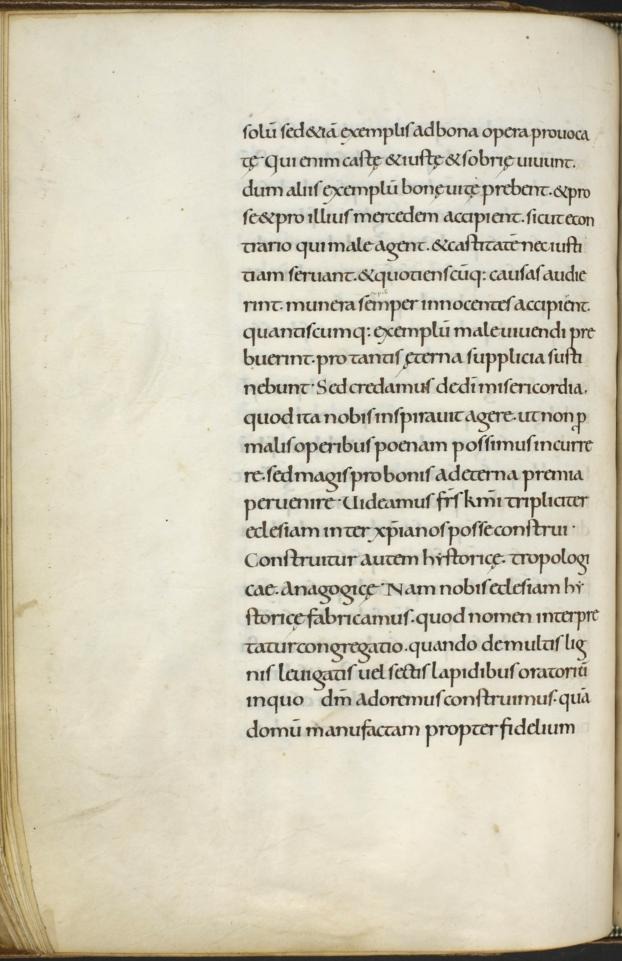 solū sed &iā exemplis ad bona opera prouoca
tę· Qui enim castę & iustę & sobrię uiuunt.
dum aliis exemplū bonę uitę prebent. & pro
se & pro illius mercedem accipient. sicut econ
trario qui male agent. & castitatē nec iusti
tiam seruant. & quotienscūq: causas audie
rint. munera semper innocentes accipient.
quantiscumq: exemplū male uiuendi pre
buerint. pro tantis ęterna supplicia susti
nebunt· Sed credamus de dī misericordia.
quod ita nobis inspirauit agere. ut non ꝑ
malis operibus poenam possimus incurre
re. sed magis pro bonis ad eterna premia
peruenire· Uideamus frs kmi tripliciter
eclesiam inter xpianos posse construi·
Construitur autem hystoricę. tropologi
cae. Anagogicę· Nam nobis eclesiam hy
storicę fabricamus. quod nomen interpre
tatur congregatio. quando de multis lig
nis leuigatis uel sectis lapidibus oratoriū
in quo dm̄ adoremus construimus. quā
domū manufactam propter fidelium